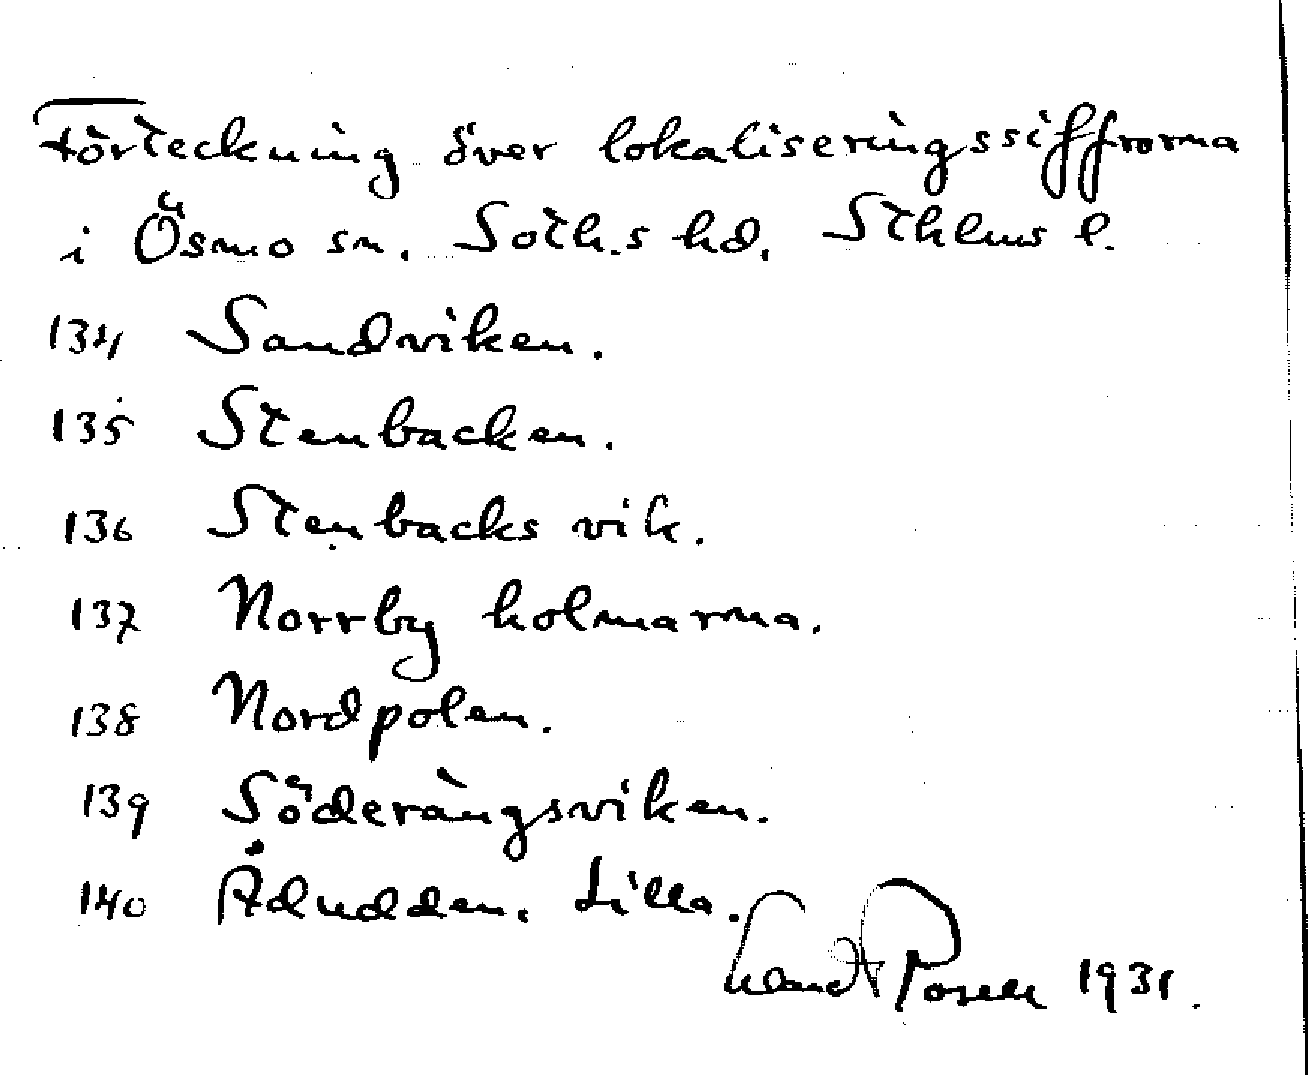 Förteckning över lokaliseringssiffrorna
i Ösmo sn. Soth.s hd. Sthlms l.
134 Sandviken.
135 Stenbacken.
136 Stenbacks vik.
137 Norrby holmarna.
138 Nordpolen.
139 Söderängsviken.
140 Ådudden. Lilla.
1931.